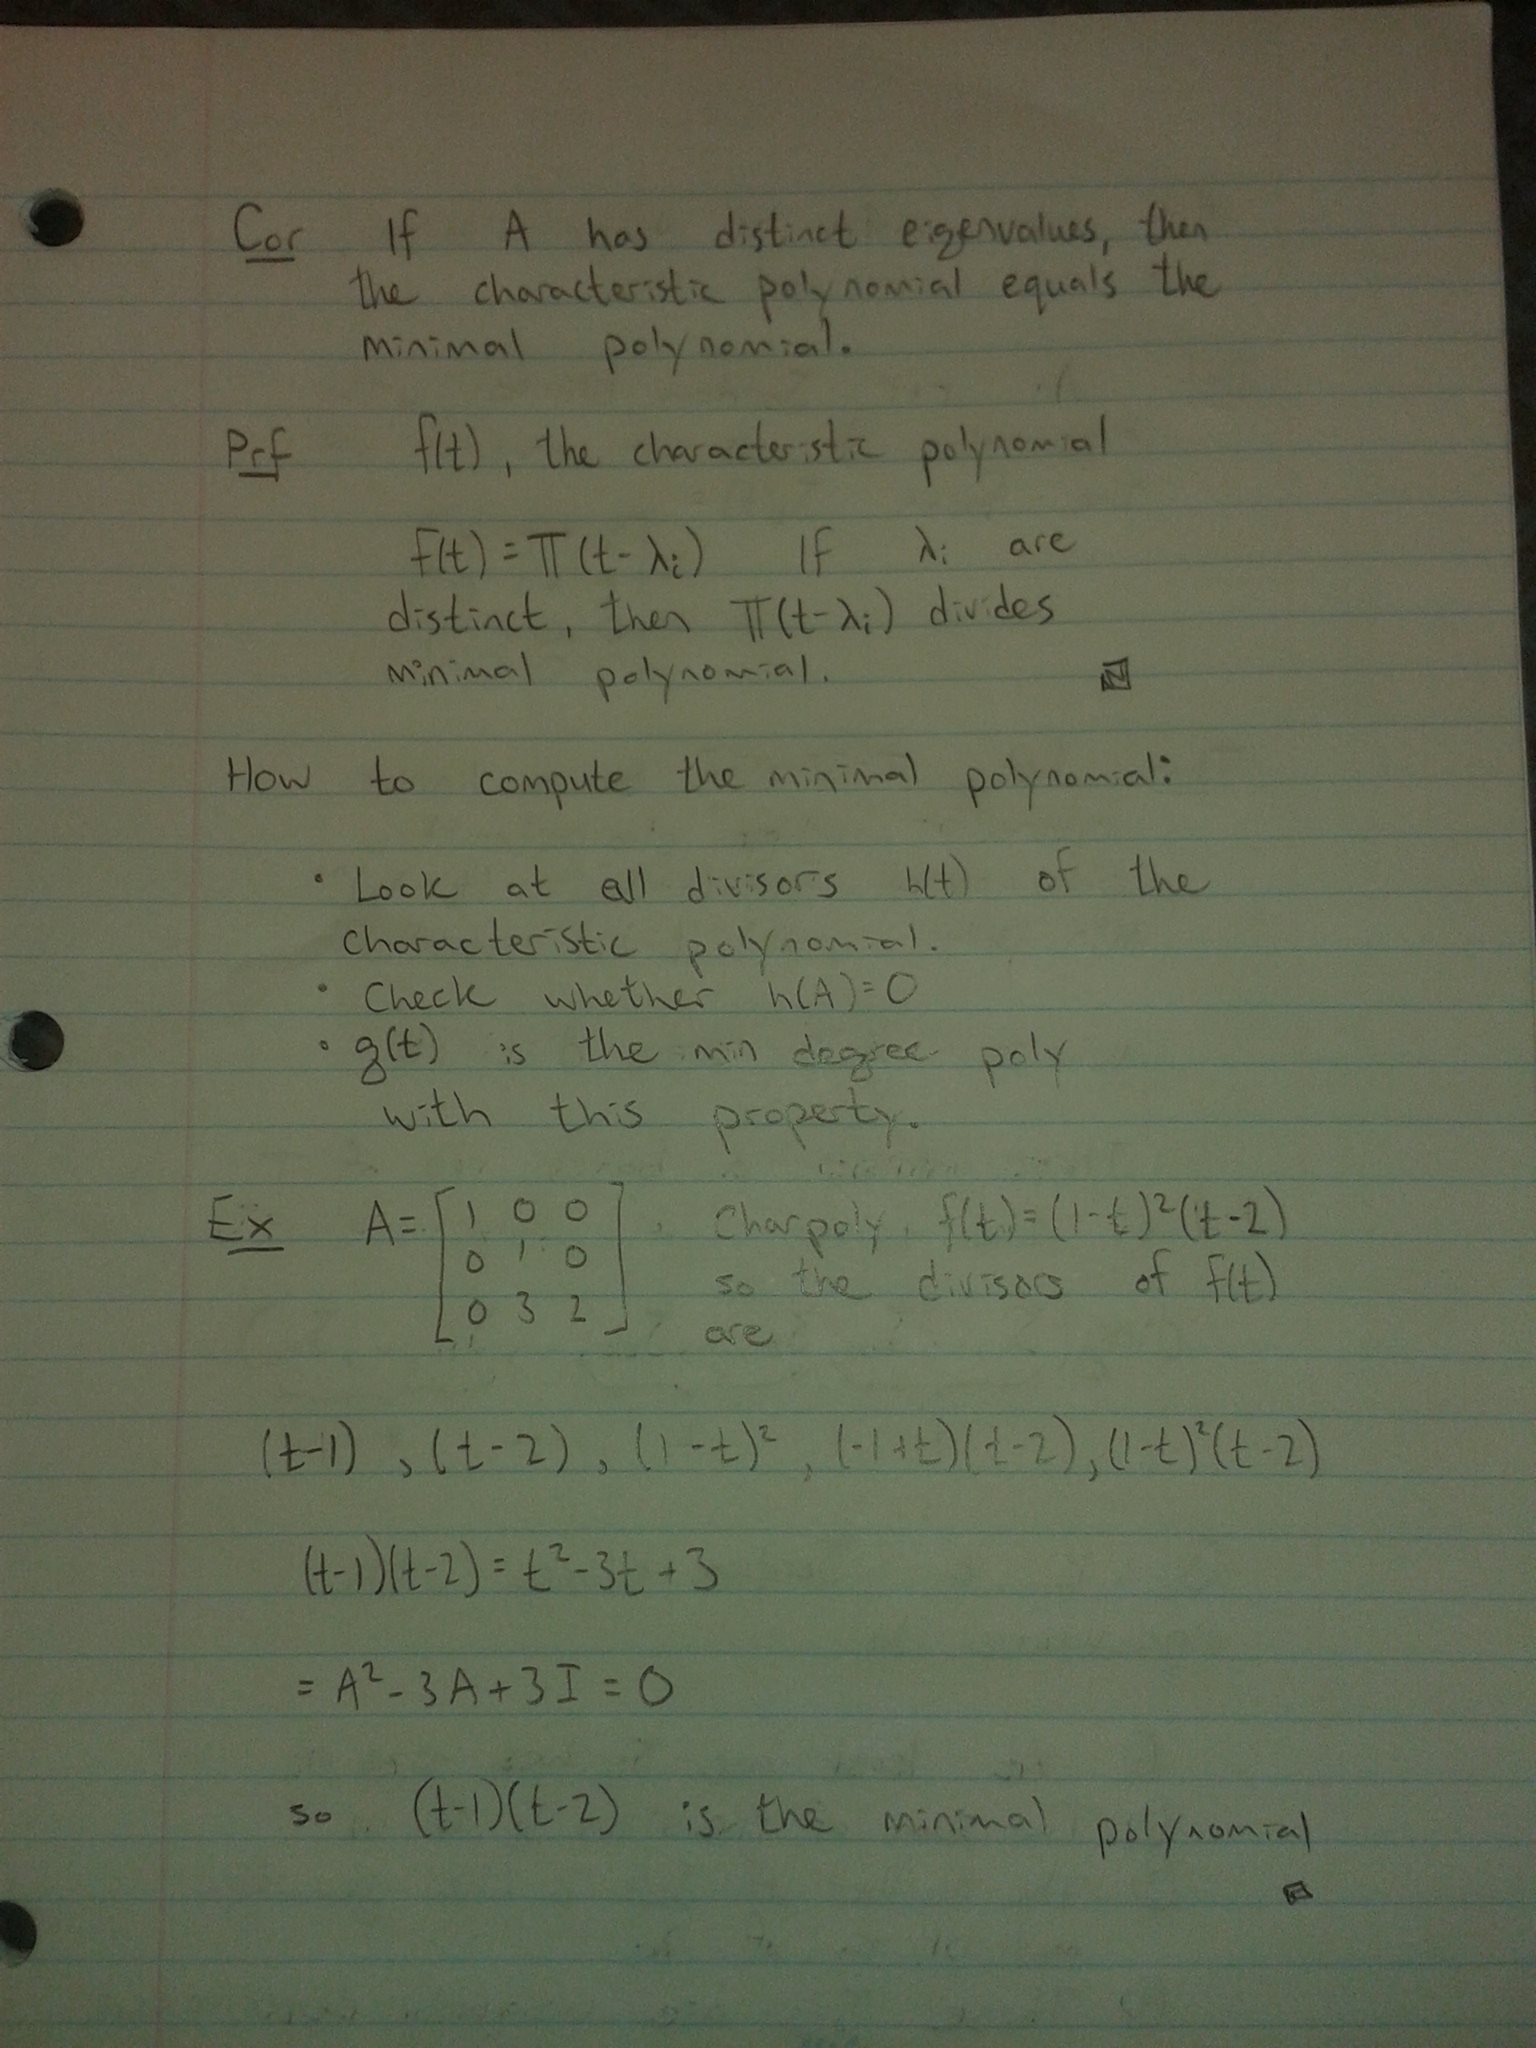 Cor If A has distinct eigenvalues, then
the characteristic polynomial equals the
minimal polynomial.
Prf f(t), the characteristic polynomial
f(t) = π(t-λi) If λi are
distinct, then π(t-λi) divides
minimal polynomial.
How to compute the minimal polynomial:
• Look at all divisors h(t) of the
characteristic polynomial.
• Check whether h(A)=0
• g(t) is the min degree poly
with this property.
Ex A = [1 0 0 Charpoly f(t)=(1-t)²(t-2)
0 1 0 so the divisors of f(t)
0 3 2] are
(t-1), (t-2), (1-t)², (-1+t)(t-2), (1-t)²(t-2)
(t-1)(t-2) = t²-3t+3
= A²-3A+3I = 0
so (t-1)(t-2) is the minimal polynomial